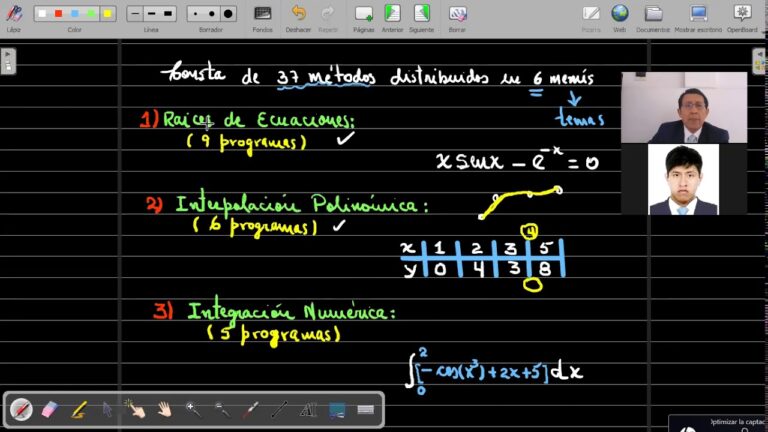 Lápiz Color Línea Borrador Fondos Deshacer Repetir Páginas Anterior Siguiente Borrar Pizarra Web Documentos Mostrar escritorio OpenBoard
Consta de 37 métodos distribuidos en 6 menús
temas
1) Raices de Ecuaciones:
(9 programas) ✓
x senx - e^-x = 0
2) Interpolación Polinómica:
(6 programas) ✓
4
x 1 2 3 5
y 0 4 3 8
3) Integración Numérica:
(5 programas)
∫₀² [- cos(x³) + 2x + 5] dx
Optimizar la captac